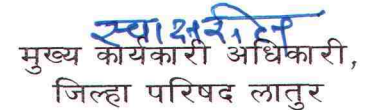 स्वाक्षरित
मुख्य कार्यकारी अधिकारी,
जिल्हा परिषद लातुर